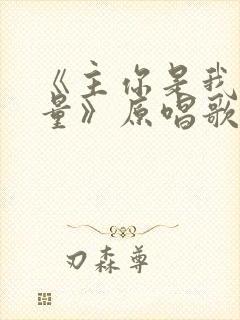 《主你是我
量》原唱歌
刃森尊